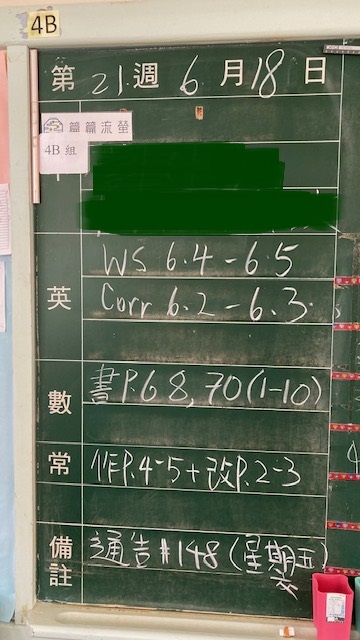 4B
第21週6月18日
篇篇流螢
4B組
英
WS 6.4-6.5
Corr 6.2-6.3
數
書P.68,70(1-10)
常
作P.4-5+改P.2-3
備註
通告#148(星期五交)